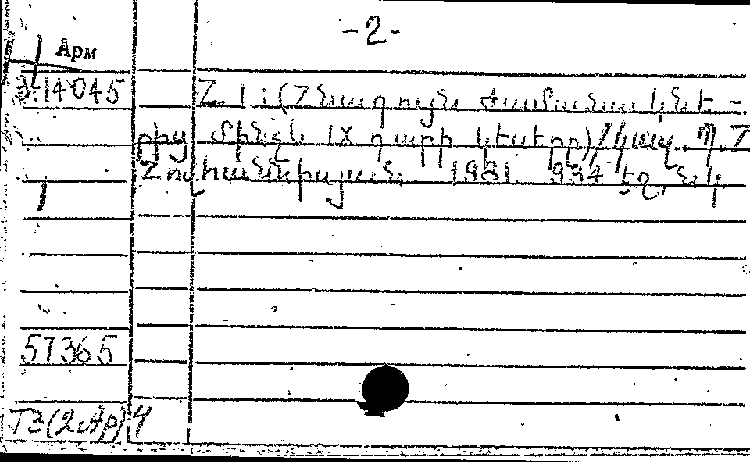 -2-
Арм
3.14045
Հ. 1 :(Հնագույն ժամանակնե-
րից մինչև IX դարի կեսերը)/կազ. Պ.Հ.
Հովհաննիսյան. 1981 934 էջ, նկ.
57365
Т3(2Ар)4